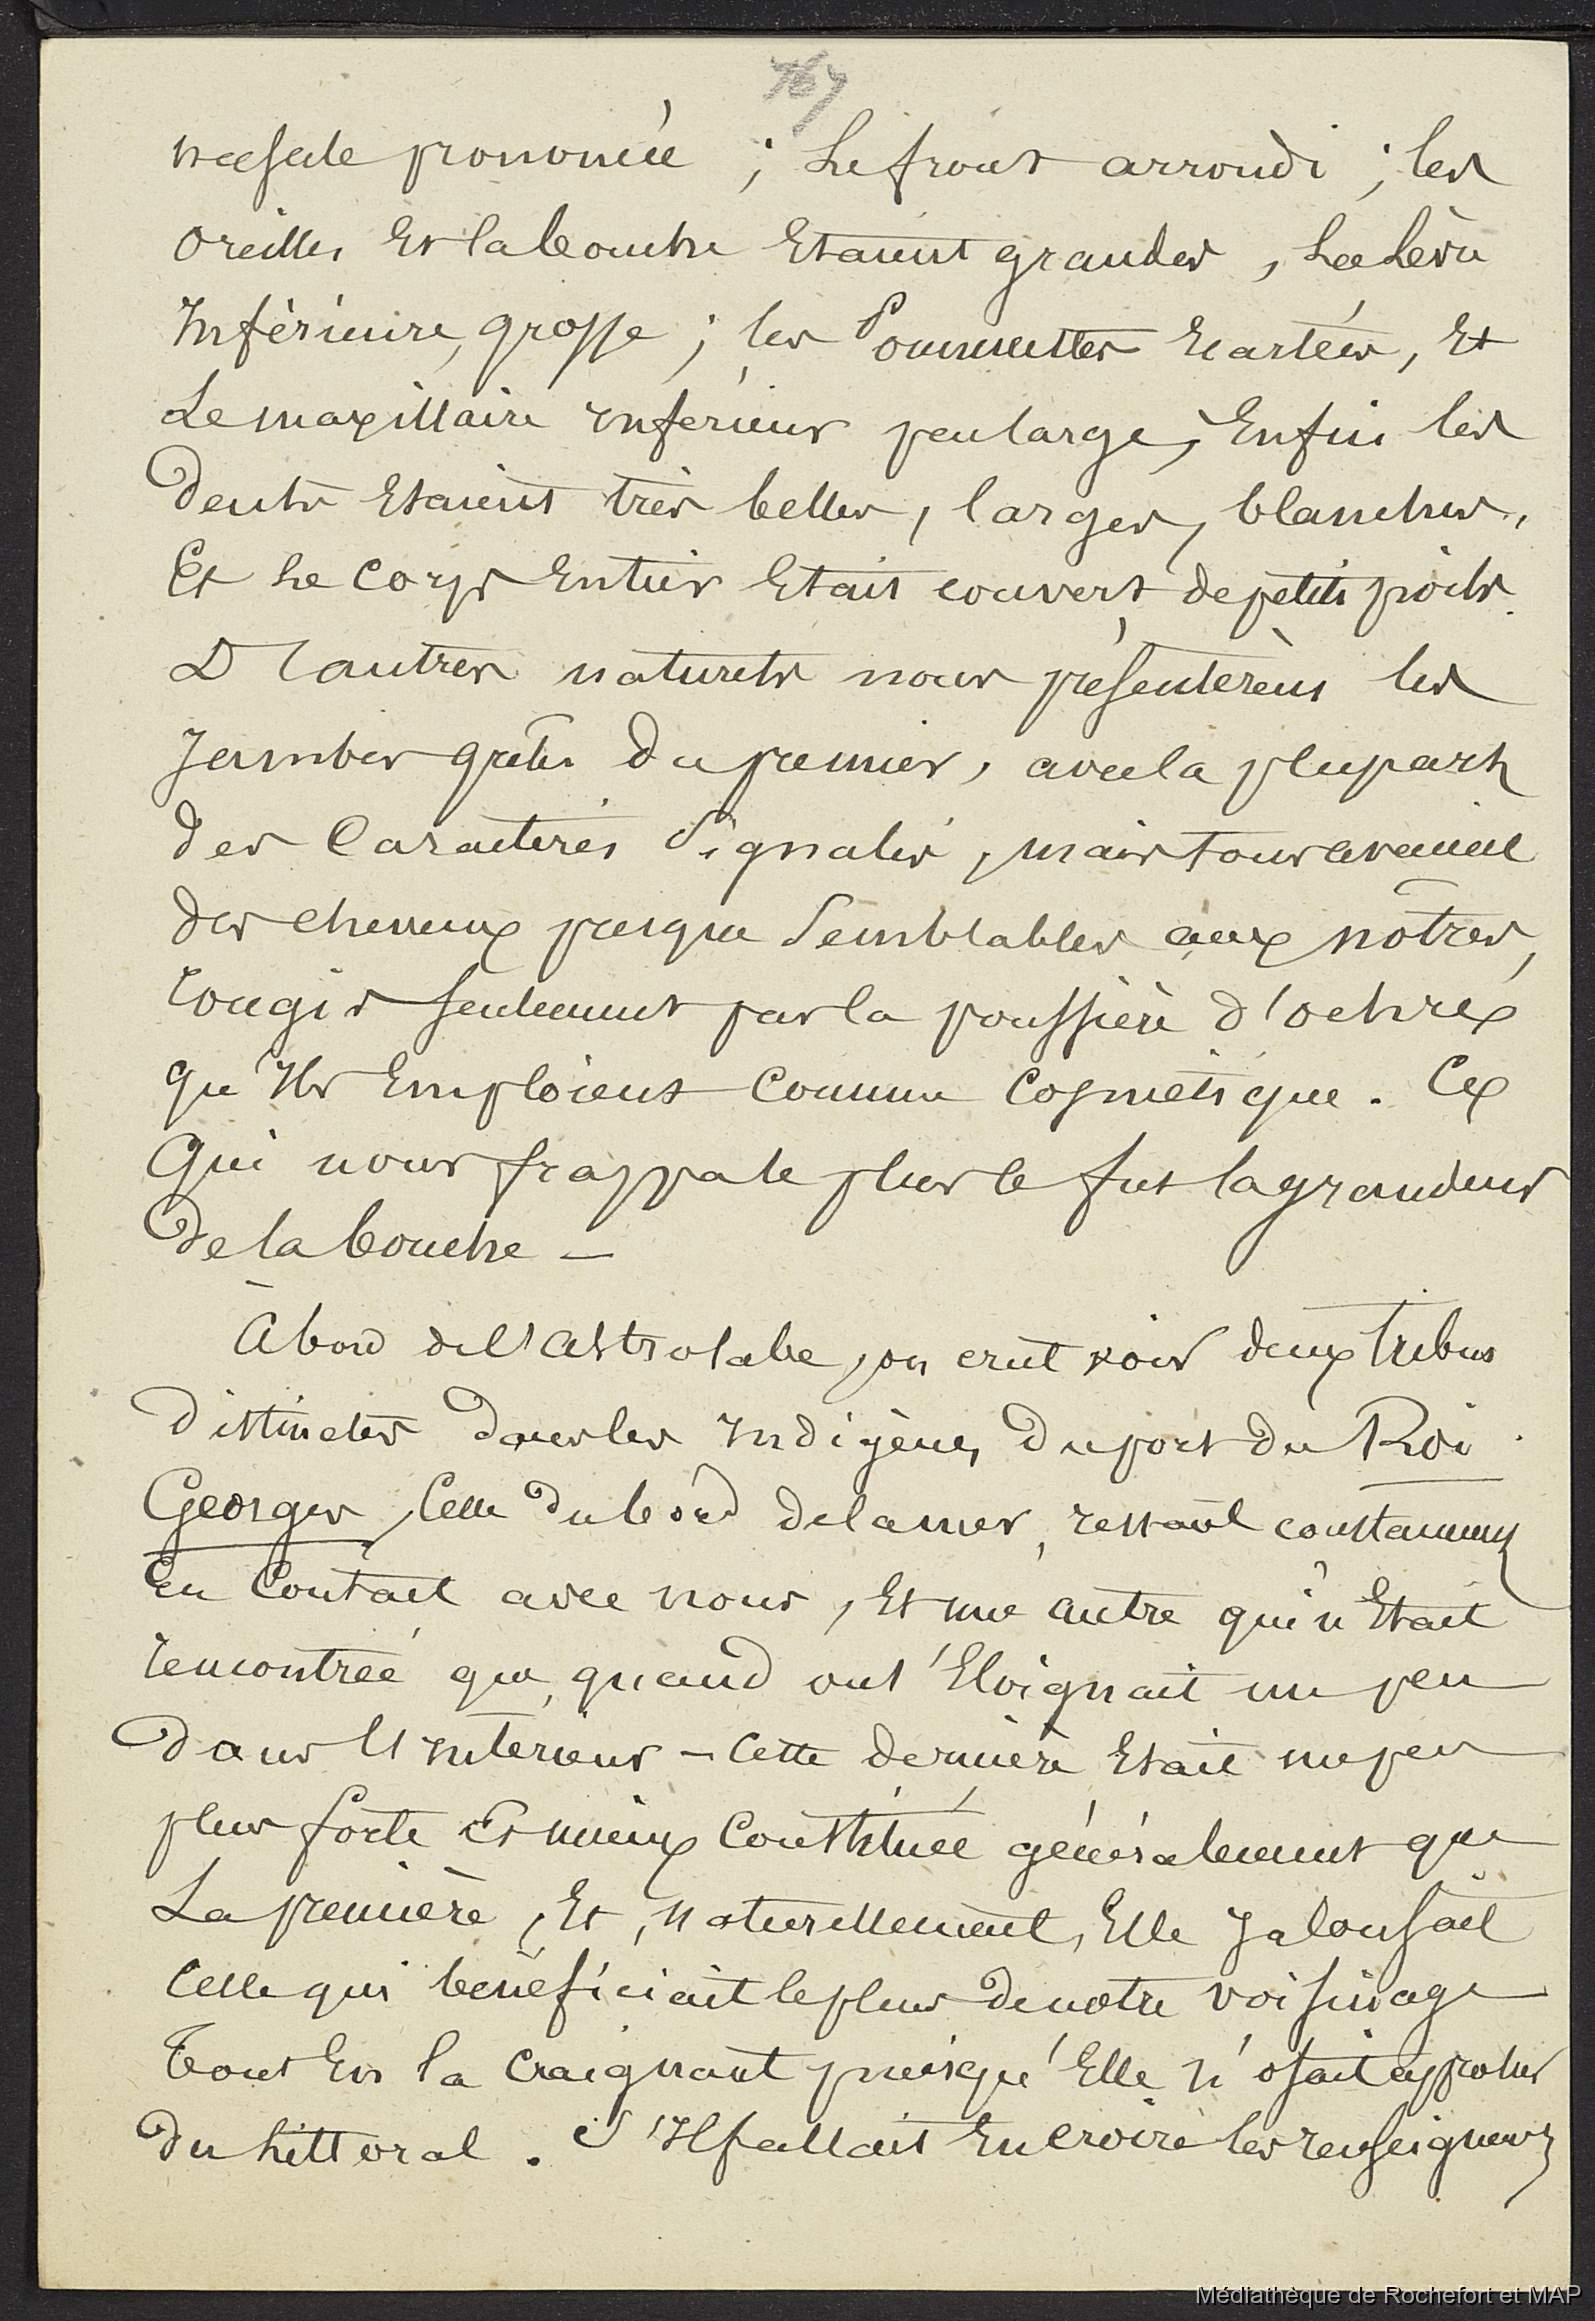 767
nasale prononcée ; Le front arrondi ; les
oreilles Et la bouche Etaient grandes, La Lèvre
Inférieure, grosse ; les Pommettes Ecartées, Et
Le maxillaire inférieur peu large, Enfin les
Dents Etaient très belles, larges, blanches,
Et Le Corps Entier Etait couvert de petits poils.
D'autres naturels nous présentèrent les
Jambes grêles du premier, avec la plupart
des Caractères Signalés, mais tous avaient
des cheveux presque Semblables aux nôtres,
rougis seulement par la poussière d'ochre
qu'Ils Emploient Comme Cosmétique. Ce
Qui nous frappa le plus ce fut la grandeur
De la bouche —
À bord de l'Astrolabe, on crut voir deux tribus
Distinctes dans les Indigènes du port du Roi
Georges, Celle du bord de la mer, restant constamment
En Contact avec nous, Et une autre qui n'Etait
rencontrée que, quand on s'Eloignait un peu
Dans l'Intérieur — Cette dernière Etait un peu
plus forte Et mieux Constituée généralement que
La première, Et, naturellement, Elle Jalousait
Celle qui bénéficiait le plus de notre voisinage
Tout En la Craignant puisqu'Elle n'osait approcher
Du Littoral. S'Il fallait En croire les renseignements
Médiathèque de Rochefort et MAP